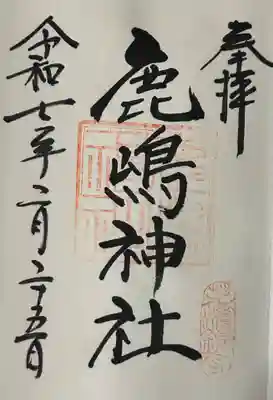 奉拝
鹿嶋神社
令和七年二月二十五日